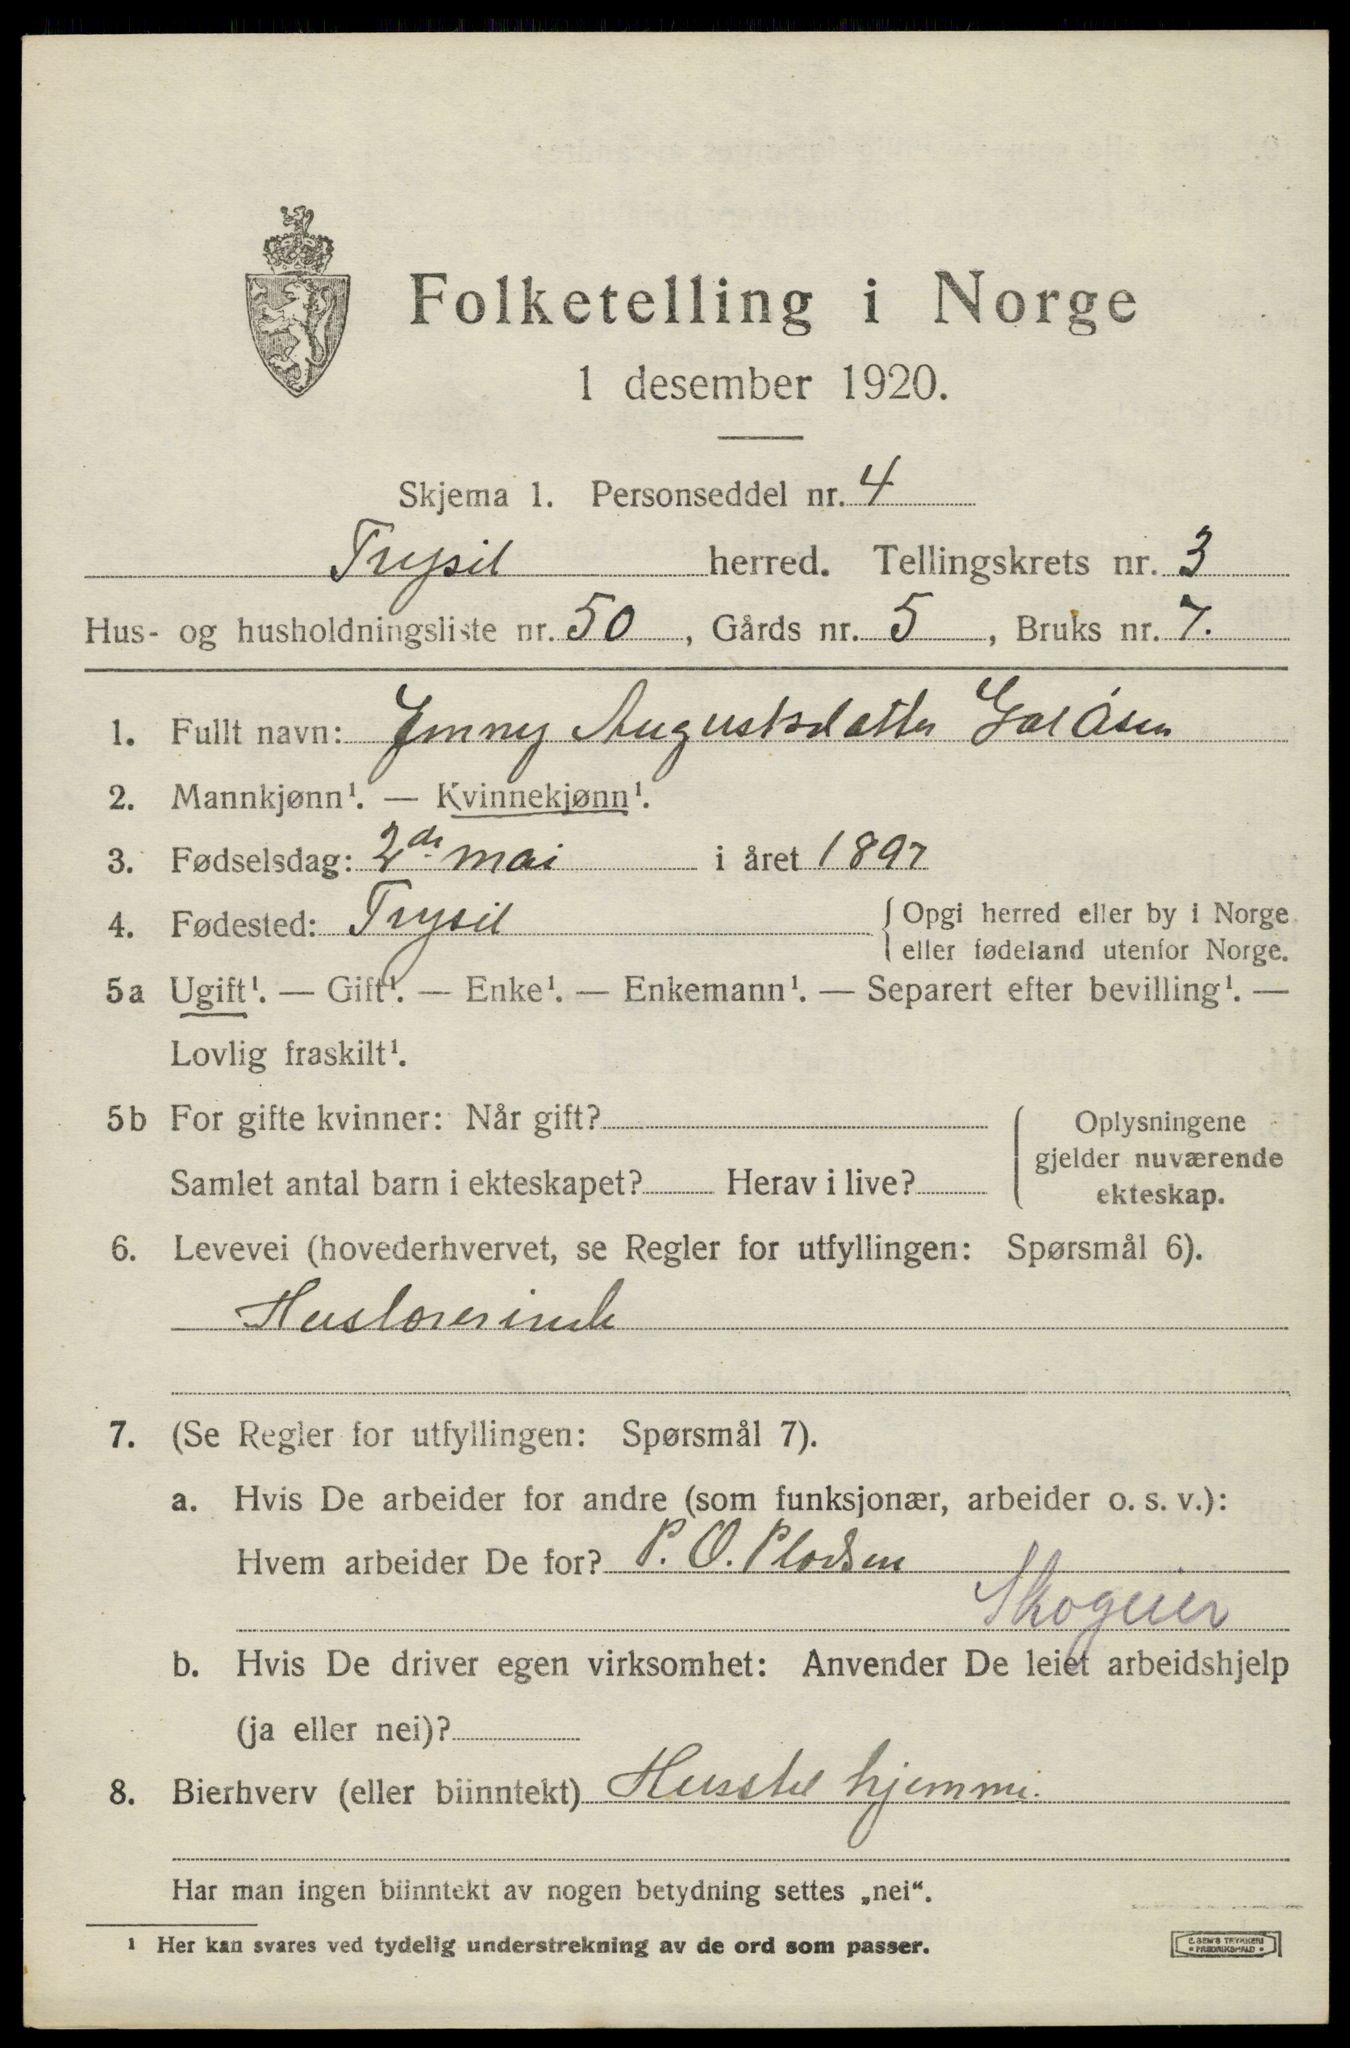 Folketelling i Norge
1 desember 1920.
Skjema 1. Personseddel nr. 4
Trysil herred. Tellingskrets nr. 3
Hus- og husholdningsliste nr. 50, Gårds nr. 5, Bruks nr. 7.
1. Fullt navn: Jenny Augustsdatter Galåsen
2. Mannkjønn¹. — Kvinnekjønn¹.
3. Fødselsdag: 2de mai i året 1897
4. Fødested: Trysil { Opgi herred eller by i Norge
eller fødeland utenfor Norge.
5a Ugift¹. — Gift¹. — Enke¹. — Enkemann¹. — Separert efter bevilling¹. —
Lovlig fraskilt¹.
5b For gifte kvinner: Når gift?
Samlet antal barn i ekteskapet? Herav i live?
Oplysningene
gjelder nuværende
ekteskap.
6. Levevei (hovederhvervet, se Regler for utfyllingen: Spørsmål 6).
Huslærerinde
7. (Se Regler for utfyllingen: Spørsmål 7).
a. Hvis De arbeider for andre (som funksjonær, arbeider o. s. v.):
Hvem arbeider De for? P. O. Pladsen
Skogeier
b. Hvis De driver egen virksomhet: Anvender De leiet arbeidshjelp
(ja eller nei)?
8. Bierhverv (eller biinntekt) Husstel hjemme.
Har man ingen biinntekt av nogen betydning settes „nei“.
¹ Her kan svares ved tydelig understrekning av de ord som passer.
E. SEM'S TRYKKERI
• FREDRIKSHALD •